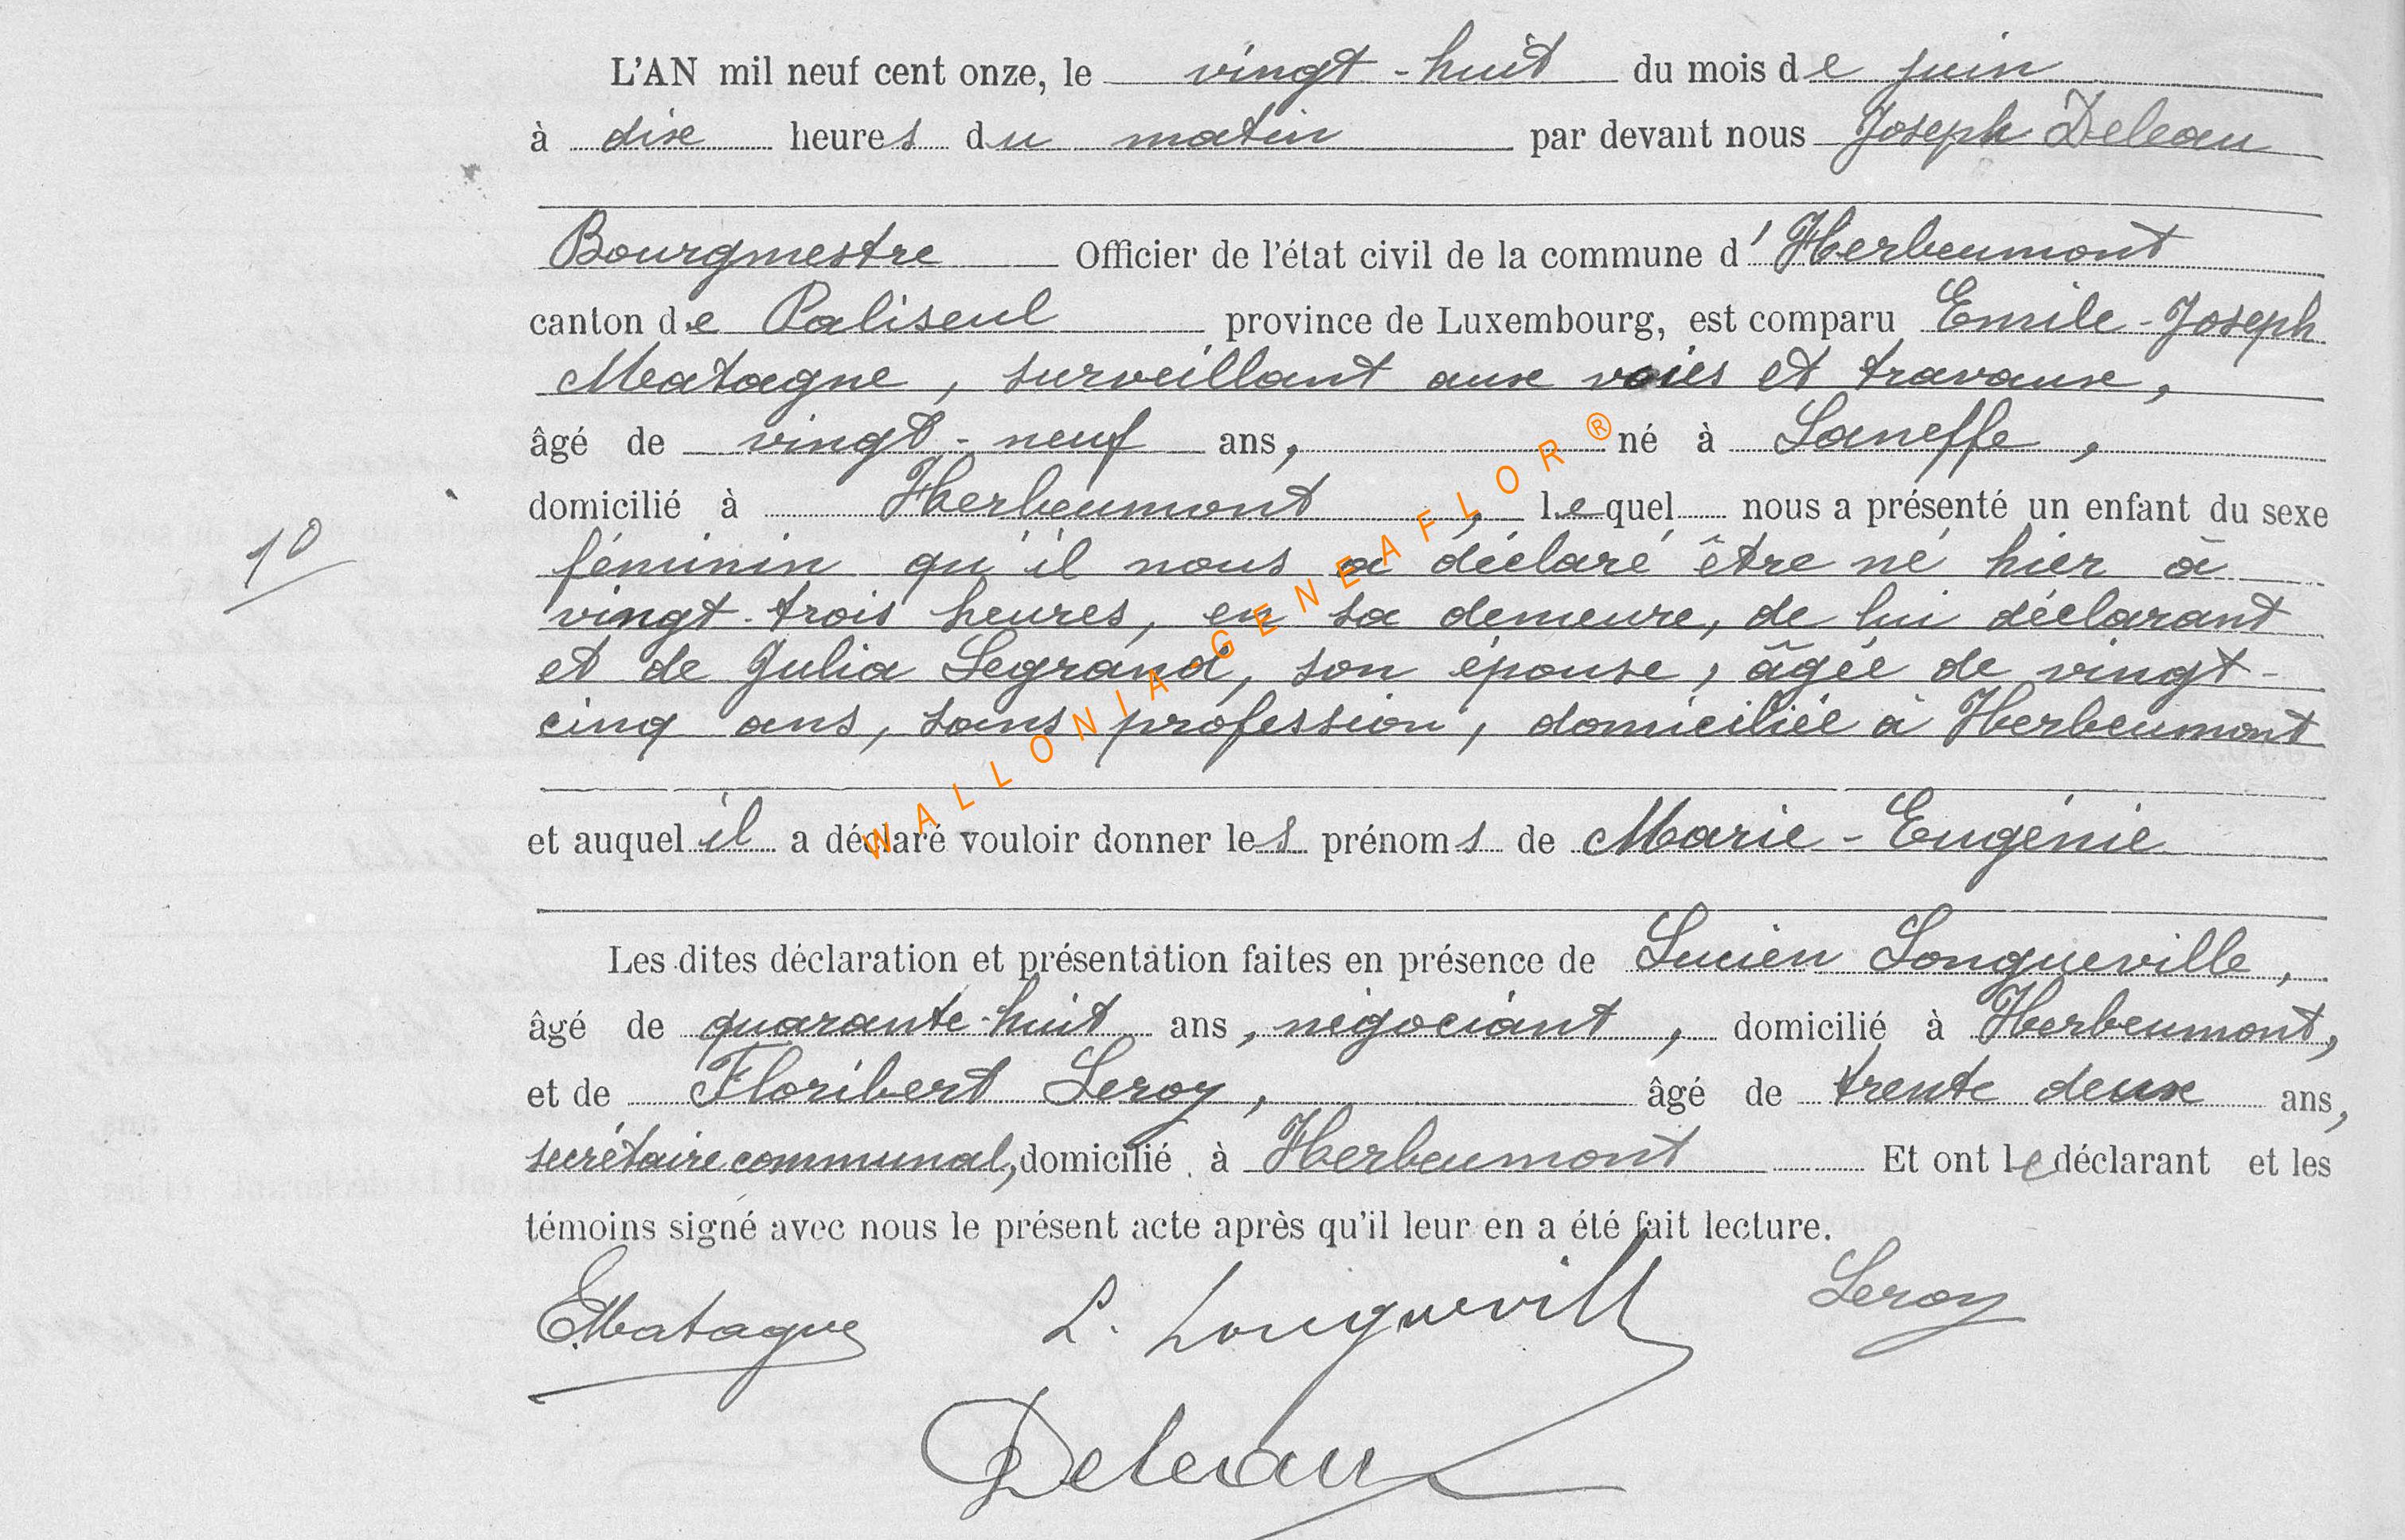 L'AN mil neuf cent onze, le vingt-huit du mois de juin
à dix heures du matin par devant nous Joseph Deleau
Bourgmestre Officier de l'état civil de la commune d'Herbeumont
canton de Paliseul province de Luxembourg, est comparu Emile-Joseph
Matagne, surveillant aux voies et travaux,
âgé de vingt-neuf ans, né à Laneffe,
domicilié à Herbeumont, lequel nous a présenté un enfant du sexe
10
féminin qu'il nous a déclaré être né hier à
vingt-trois heures, en sa demeure, de lui déclarant
et de Julia Legrand, son épouse, âgée de vingt-
cinq ans, sans profession, domiciliée à Herbeumont
et auquel il a déclaré vouloir donner les prénoms de Marie-Eugénie
Les dites déclaration et présentation faites en présence de Lucien Longueville,
âgé de quarante-huit ans, négociant, domicilié à Herbeumont,
et de Floribert Leroy, âgé de trente deux ans,
secrétaire communal, domicilié à Herbeumont Et ont le déclarant et les
témoins signé avec nous le présent acte après qu'il leur en a été fait lecture.
EMatagne L. Longueville Leroy
Deleau
WALLONIA-GENEAFLOR®